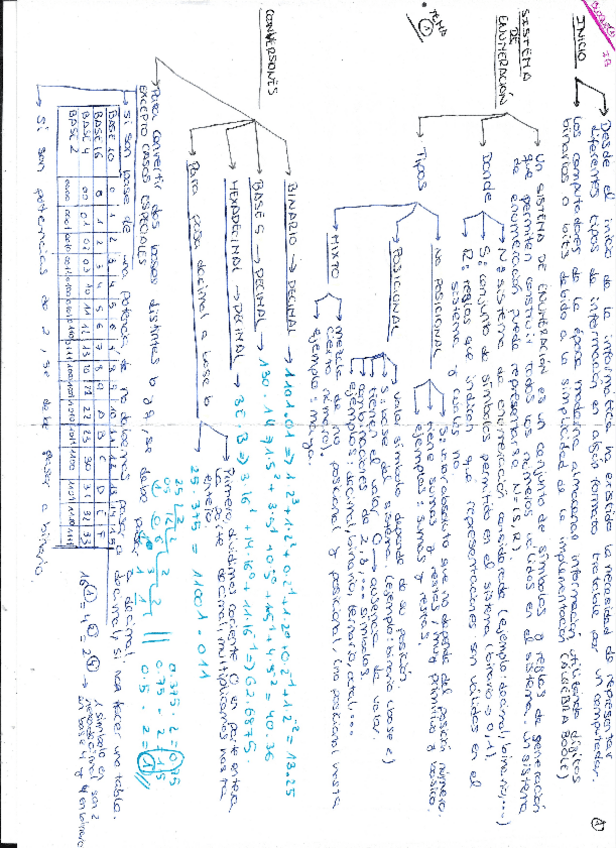 TEMA 1
INICIO
Desde el inicio de la informática ha existido necesidad de representar
diferentes tipos de información en algún formato tratable por un computador.
Los computadores de la época moderna almacenan información utilizando dígitos
binarios o bits debido a la simplicidad de la implementación (ÁLGEBRA BOOLE)
SISTEMA
DE
ENUMERACIÓN
Un SISTEMA DE ENUMERACIÓN es un conjunto de símbolos y reglas de generación
que permiten construir todos los números válidos en el sistema. Un sistema
de enumeración puede representarse N=(S,R).
Donde
N: sistema de enumeración considerado (ejemplo: decimal, binario,...)
S: conjunto de símbolos permitido en el sistema (binario → 0,1).
R: reglas que indican que representaciones son válidas en el
sistema y cuales no.
Tipos
NO POSICIONAL
S: valor absoluto que no depende del posición número.
tiene sumas y restas, muy primitivo y básico.
ejemplos: sumas y restas.
POSICIONAL
valor símbolo depende de su posición.
S: base del sistema. (ejemplo: binario → base 2)
tienen el valor 0 → ausencia de valor.
combinaciones de símbolos.
ejemplos: decimal, binario, ternario, octal...
MIXTO
mezcla de no posicional y posicional, (no posicional hasta
cierto número).
ejemplo: maya.
CONVERSIONES
BINARIO → DECIMAL → 1101.01 ⇒ 1·2³+1·2²+0·2¹+1·2⁰+0·2⁻¹+1·2⁻² = 13.25
BASE 5 → DECIMAL → 130.14 ⇒ 1·5²+3·5¹+0·5⁰+1·5⁻¹+4·5⁻² = 40.36
HEXADECIMAL → DECIMAL → 3E.B ⇒ 3·16¹+14·16⁰+11·16⁻¹ ⇒ 62.6875.
Para pasar decimal a base b
Primero, dividimos cociente 0 en parte entera
La parte decimal, multiplicamos hasta
entero.
25.375 = 11001.011
25 2
0.375 · 2 = 0.75
0.75 · 2 = 1.5
0.5 · 2 = 1
Para convertir dos bases distintas b y g, se debe pasar a decimal.
EXCEPTO CASOS ESPECIALES
Si son base de una Potencia, no debemos pasar a decimal, si no hacer una tabla.
BASE 10 0 1 2 3 4 5 6 7 8 9 10 11 12 13 14 15
BASE 16 0 1 2 3 4 5 6 7 8 9 A B C D E F
BASE 4 00 01 02 03 10 11 12 13 20 21 22 23 30 31 32 33
BASE 2
1 símbolo en
hexadecimal son 2
en base 4 y 4 en binario
Si son potencias de 2, se debe pasar a binario.